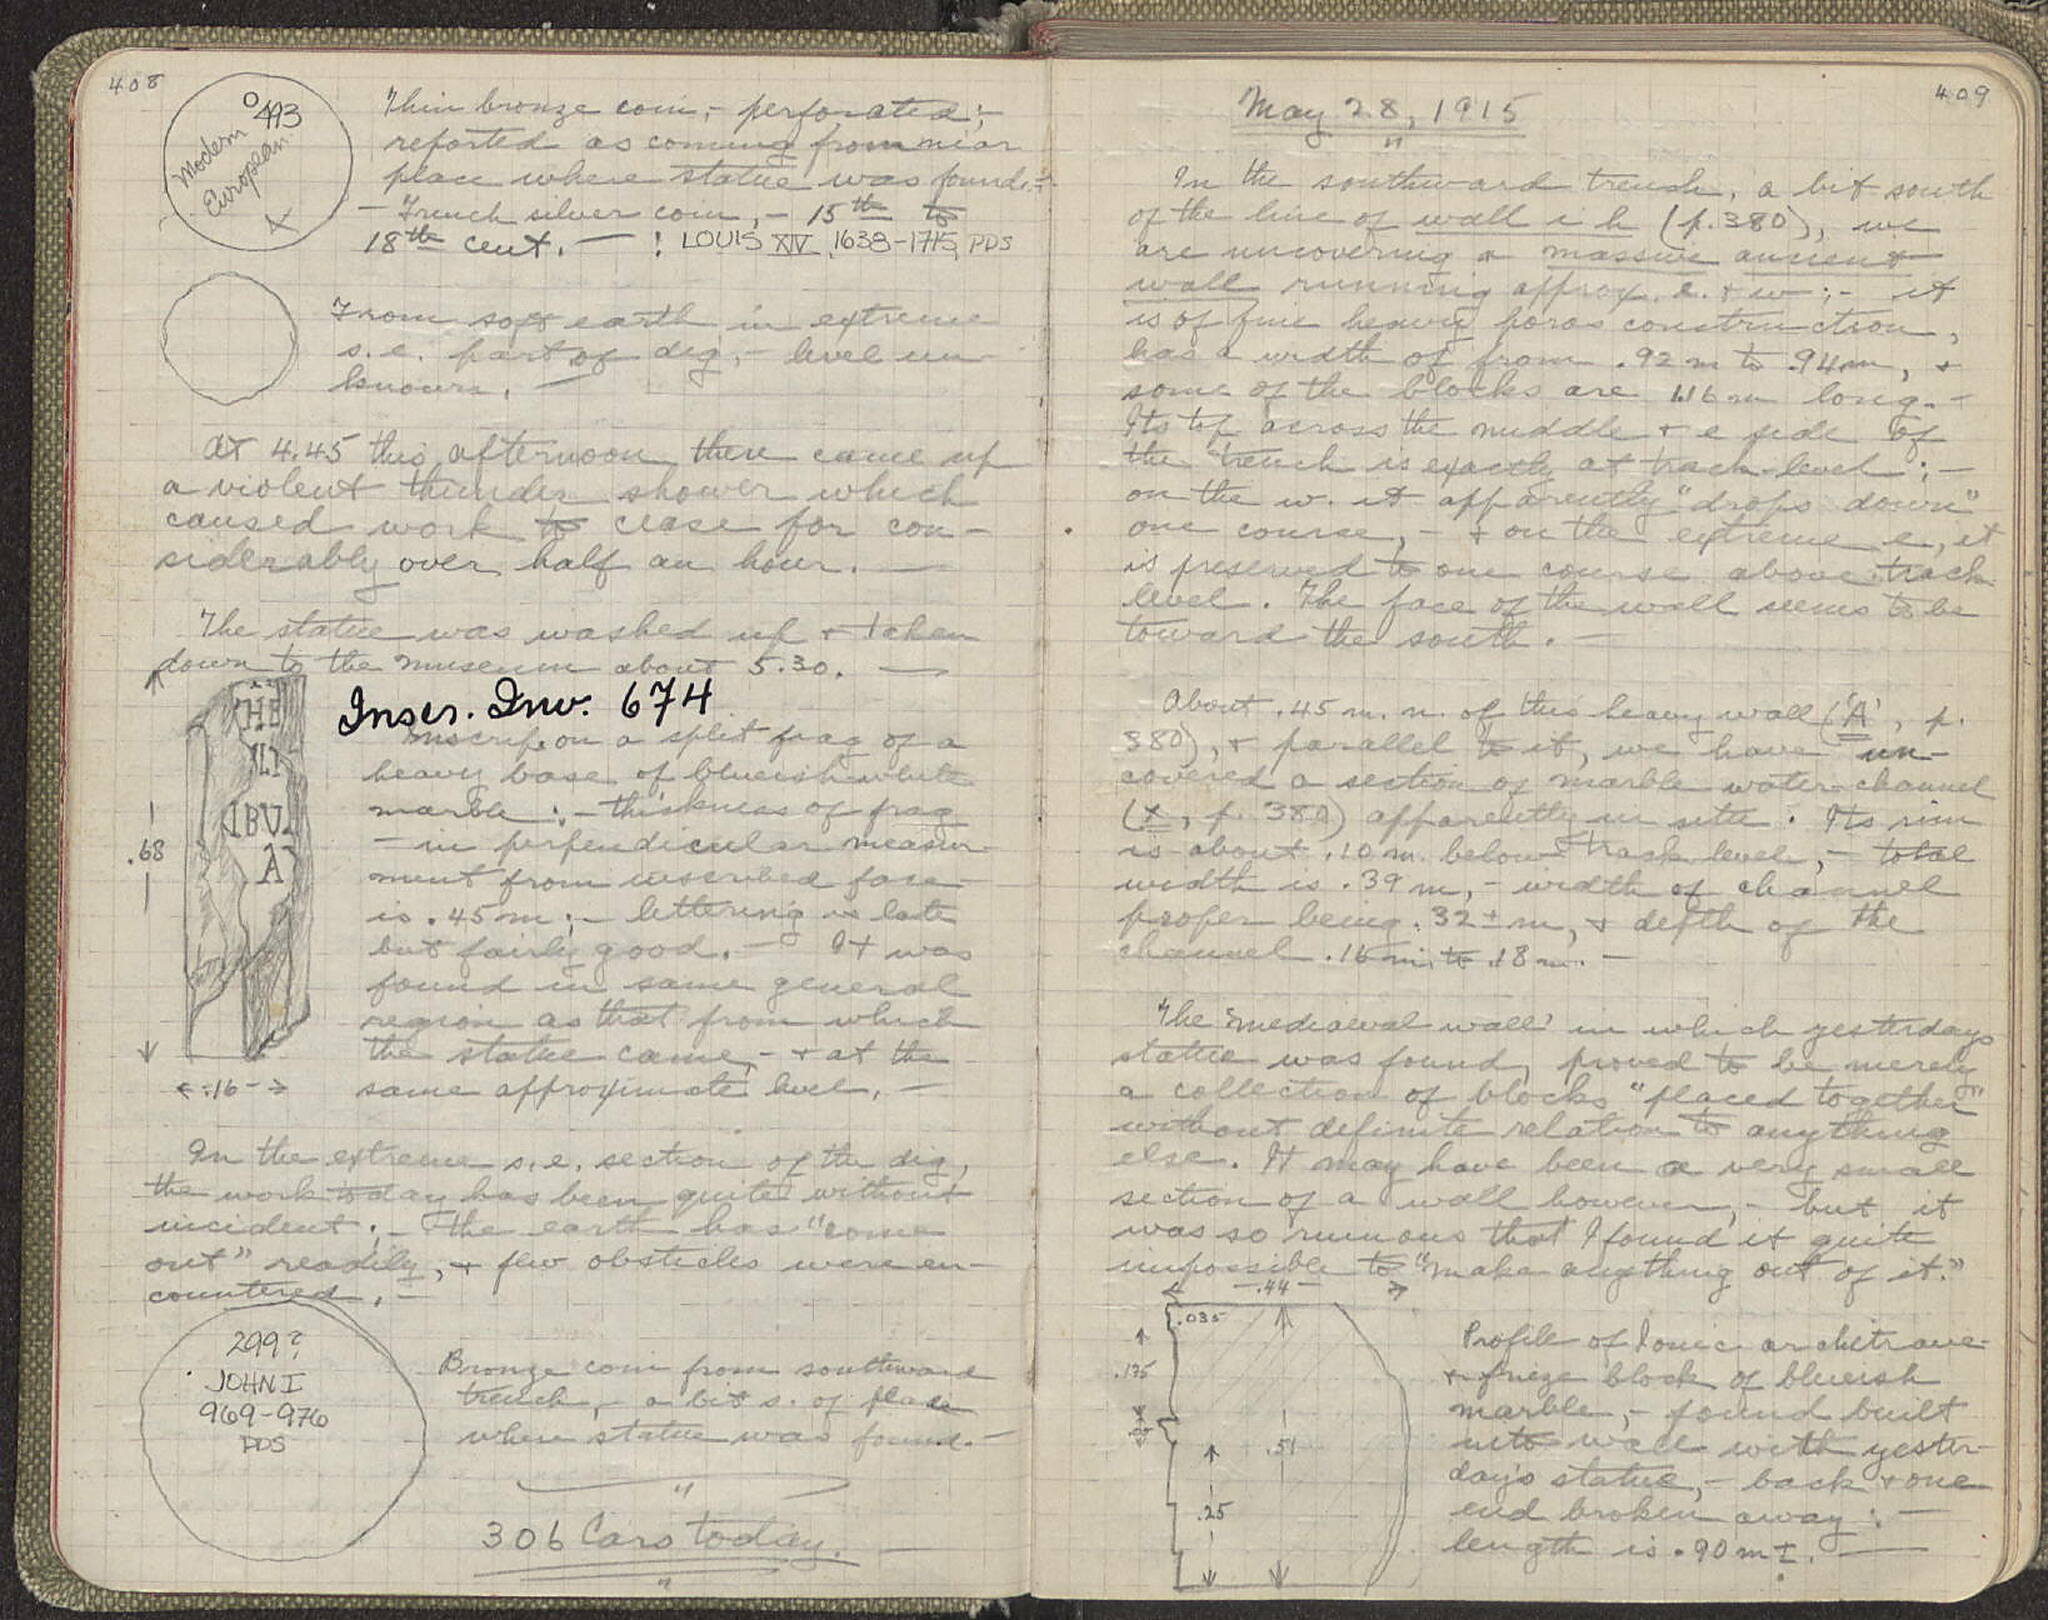 408
0 493
Modern
European
X
Thin bronze coin, - perforated; -
reported as coming from near
place where statue was found. -
- French silver coin, - 15th to
18th cent. — ! LOUIS XIV, 1638-1715, PDS
From soft earth in extreme
s.e. part of dig, - level un-
known. —
At 4.45 this afternoon there came up
a violent thunder shower which
caused work to cease for con-
siderably over half an hour. —
The statue was washed up + taken
down to the museum about 5.30. —
Inscr. Inv. 674
HE
LI
IBV
A
.68
←.16→
Inscrip. on a split frag of a
heavy base of blueish white
marble: - thickness of frag
- in perpendicular measur-
ment from inscribed face -
is .45 m; - lettering is late
but fairly good. - It was
found in same general
region as that from which
the statue came, - + at the
same approximate level. —
In the extreme s.e. section of the dig,
the work today has been quite without
incident; - the earth has "come
out" readily, + few obstacles were en-
countered. —
299?
JOHN I
969-976
PDS
Bronze coin from southward
trench, - a bit s. of place
where statue was found. -
"
306 Cars today. —
"
409
May 28, 1915
"
In the southward trench, a bit south
of the line of wall i h (p. 380), we
are uncovering a massive ancient
wall running approx. e. + w: - it
is of fine heavy poros construction,
has a width of from .92 m to .94 m, +
some of the blocks are 1.16 m long. -
Its top across the middle + e side of
the trench is exactly at track-level; -
on the w. it apparently "drops down"
one course, - + on the extreme e, it
is preserved to one course above track
level. The face of the wall seems to be
toward the south. —
About .45 m. n. of this heavy wall ('A', p.
380), + parallel to it, we have un-
covered a section of marble water-channel
(x, p. 380) apparently in situ. Its rim
is about .10 m. below track level, - total
width is .39 m, - width of channel
proper being .32 ± m, + depth of the
channel .16 m. to .18 m. —
The 'mediaeval wall' in which yesterdays
statue was found, proved to be merely
a collection of blocks "placed together"
without definite relation to anything
else. It may have been a very small
section of a wall however, - but it
was so ruinous that I found it quite
impossible to "make anything out of it."
.44
.035
.175
.51
.25
Profile of Ionic architrave-
+ frieze block of blueish
marble, - found built
into wall with yester-
day's statue, - back + one
end broken away: -
length is .90 m ±. —